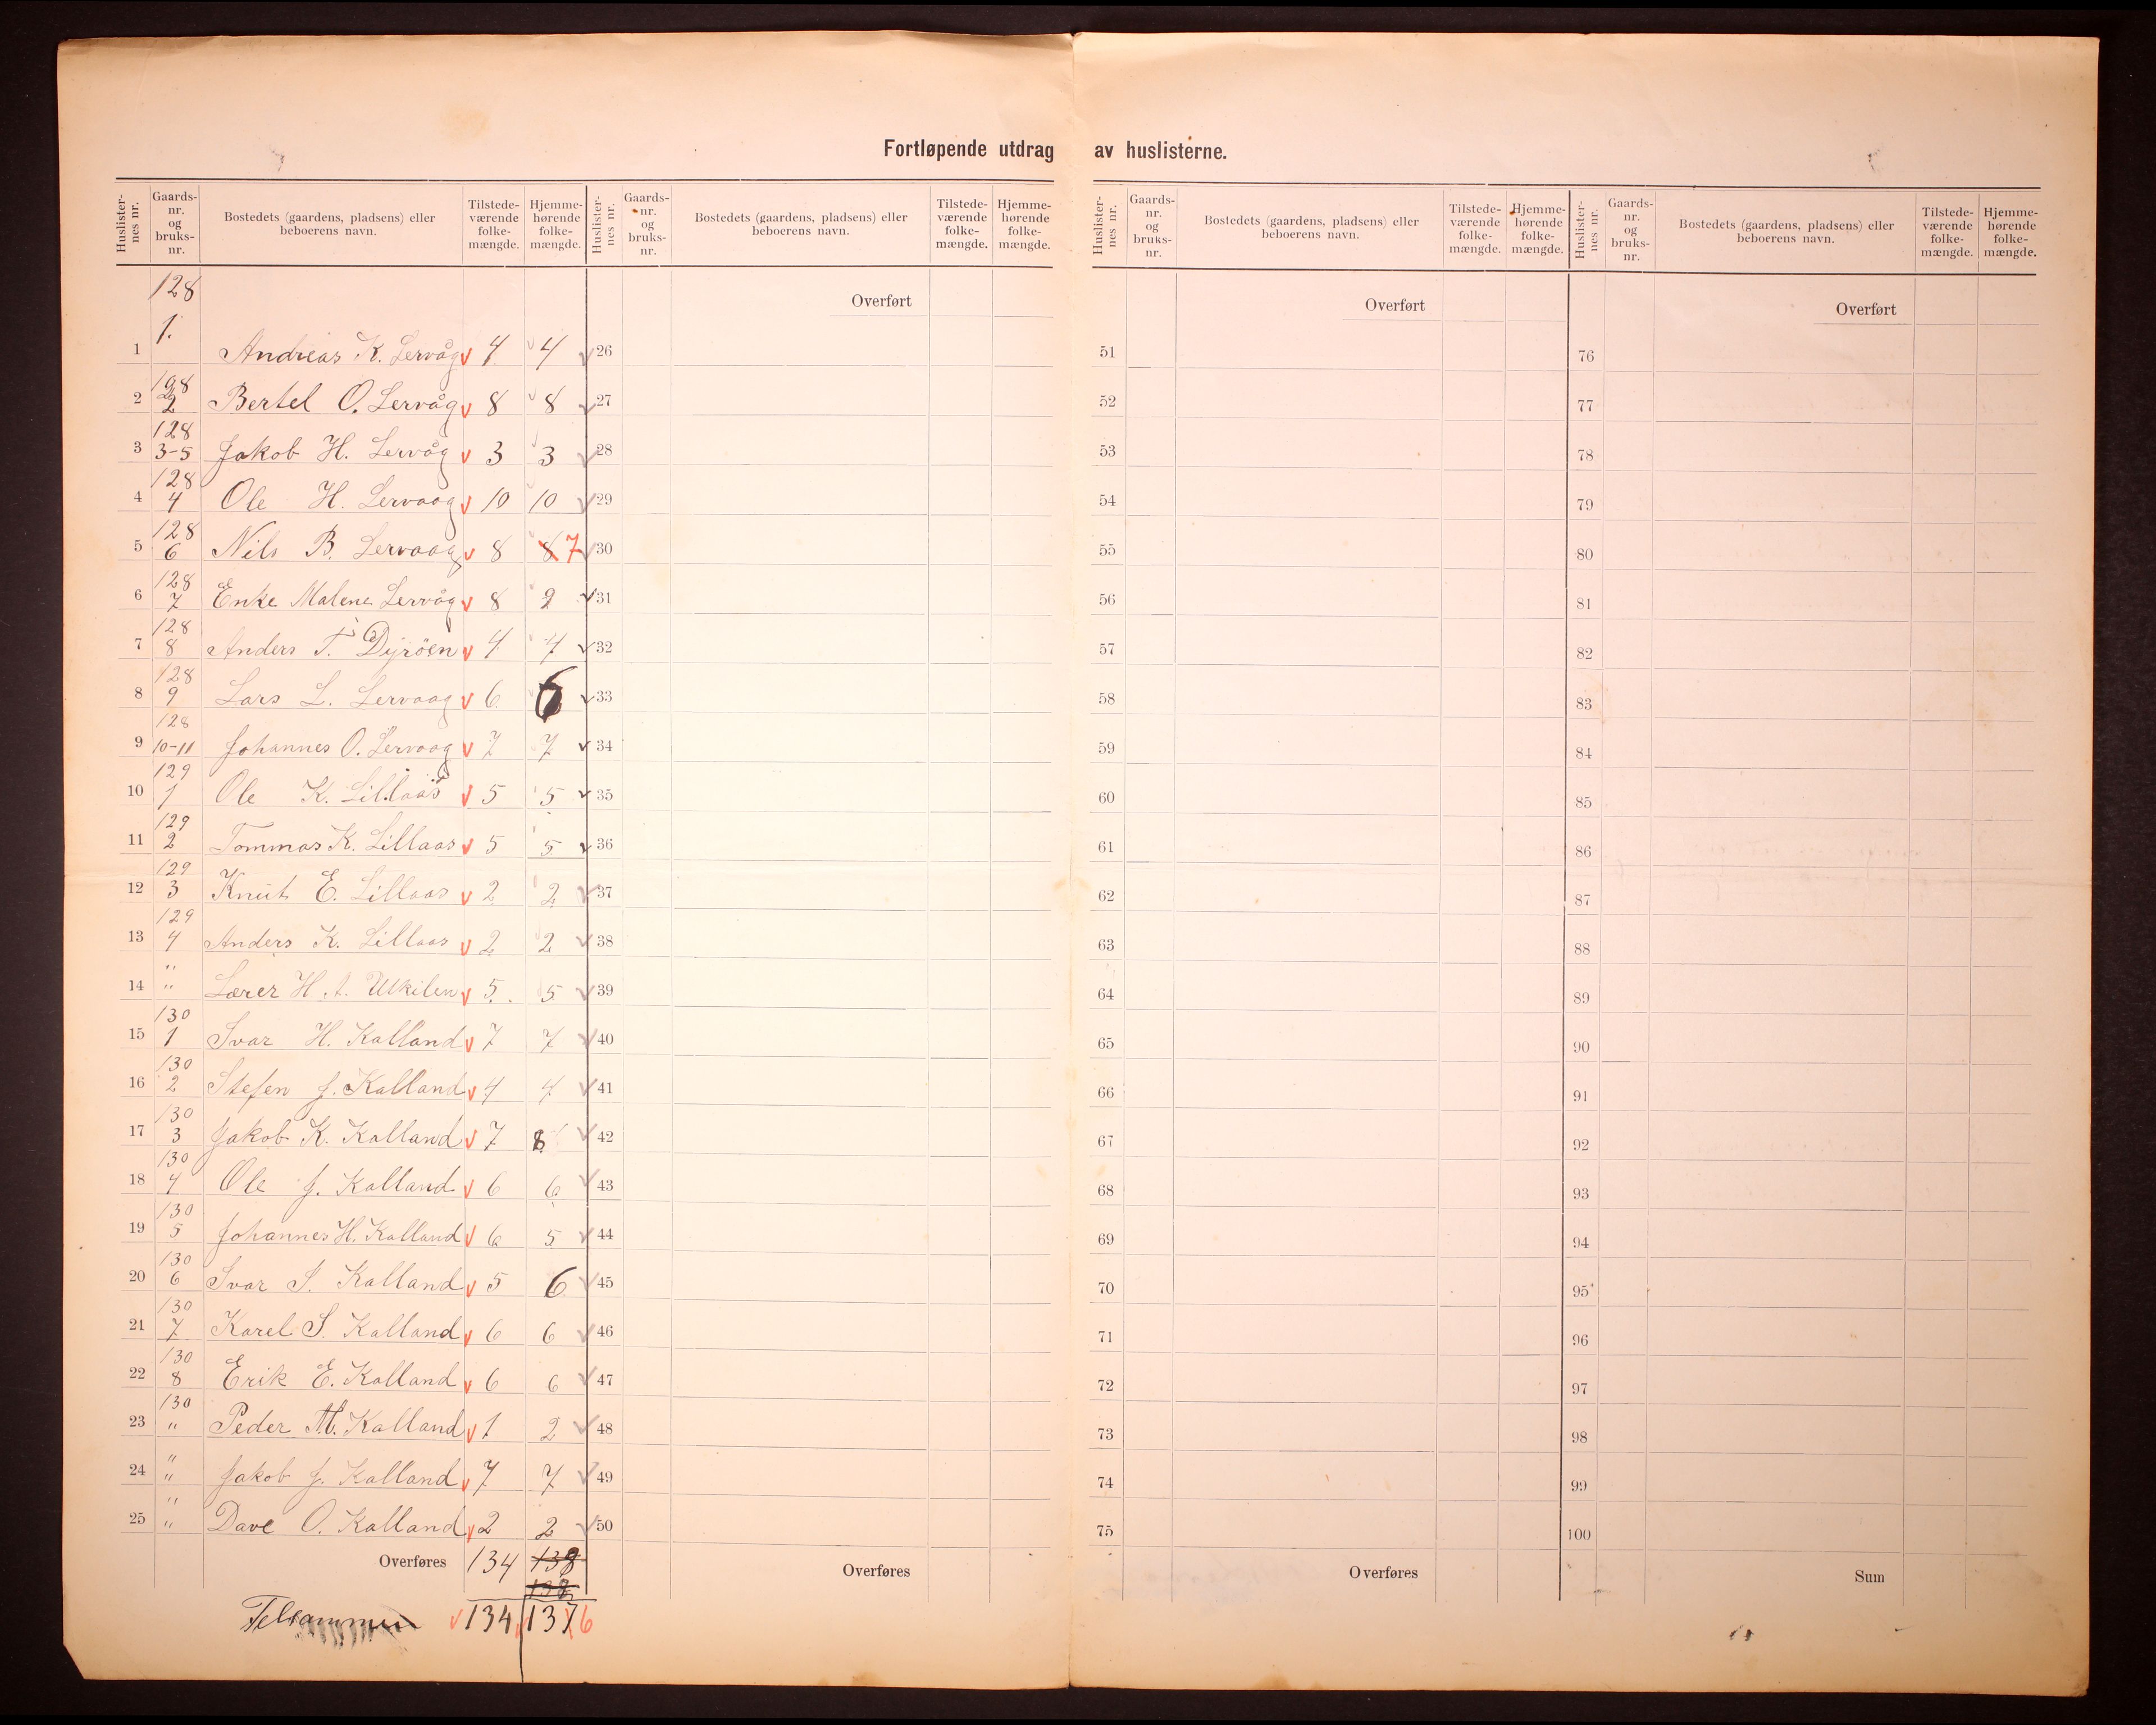 Fortløpende utdrag av huslisterne.
Huslister-nes nr. Gaards-nr. og bruks-nr. Bostedets (gaardens, pladsens) eller beboerens navn. Tilstede-værende folke-mængde. Hjemme-hørende folke-mængde. Huslister-nes nr. Gaards-nr. og bruks-nr. Bostedets (gaardens, pladsens) eller beboerens navn. Tilstede-værende folke-mængde. Hjemme-hørende folke-mængde. Huslister-nes nr. Gaards-nr. og bruks-nr. Bostedets (gaardens, pladsens) eller beboerens navn. Tilstede-værende folke-mængde. Hjemme-hørende folke-mængde. Huslister-nes nr. Gaards-nr. og bruks-nr. Bostedets (gaardens, pladsens) eller beboerens navn. Tilstede-værende folke-mængde. Hjemme-hørende folke-mængde.
Overført Overført Overført
1 128 1. Andreas K. Lervåg 4 4 26 51 76
2 128 2 Bertel O. Lervåg 8 8 27 52 77
3 128 3-5 Jakob H. Lervåg 3 3 28 53 78
4 128 4 Ole H. Lervaag 10 10 29 54 79
5 128 6 Nils B. Lervaag 8 8 7 30 55 80
6 128 7 Enke Malene Lervåg 8 9 31 56 81
7 128 8 Anders T. Dyröen 4 4 32 57 82
8 128 9 Lars L. Lervaag 6 6 33 58 83
9 128 10-11 Johannes O. Lervaag 7 7 34 59 84
10 129 1 Ole K. Lillaas 5 5 35 60 85
11 129 2 Tommas K. Lillaas 5 5 36 61 86
12 129 3 Knut E. Lillaas 2 2 37 62 87
13 129 4 Anders K. Lillaas 2 2 38 63 88
14 " " Lærer H. A. Ulkilen 5 5 39 64 89
15 130 1 Ivar H. Kalland 7 7 40 65 90
16 130 2 Stefen J. Kalland 4 4 41 66 91
17 130 3 Jakob K. Kalland 7 8 42 67 92
18 130 4 Ole J. Kalland 6 6 43 68 93
19 130 5 Johannes H. Kalland 6 5 44 69 94
20 130 6 Ivar S. Kalland 5 6 45 70 95
21 130 7 Karel S. Kalland 6 6 46 71 96
22 130 8 Erik E. Kalland 6 6 47 72 97
23 130 " Peder M. Kalland 1 2 48 73 98
24 " " Jakob J. Kalland 7 7 49 74 99
25 " " Dave O. Kalland 2 2 50 75 100
Overføres 134 138 Overføres Overføres Sum
138
Telsammen 134 137 6